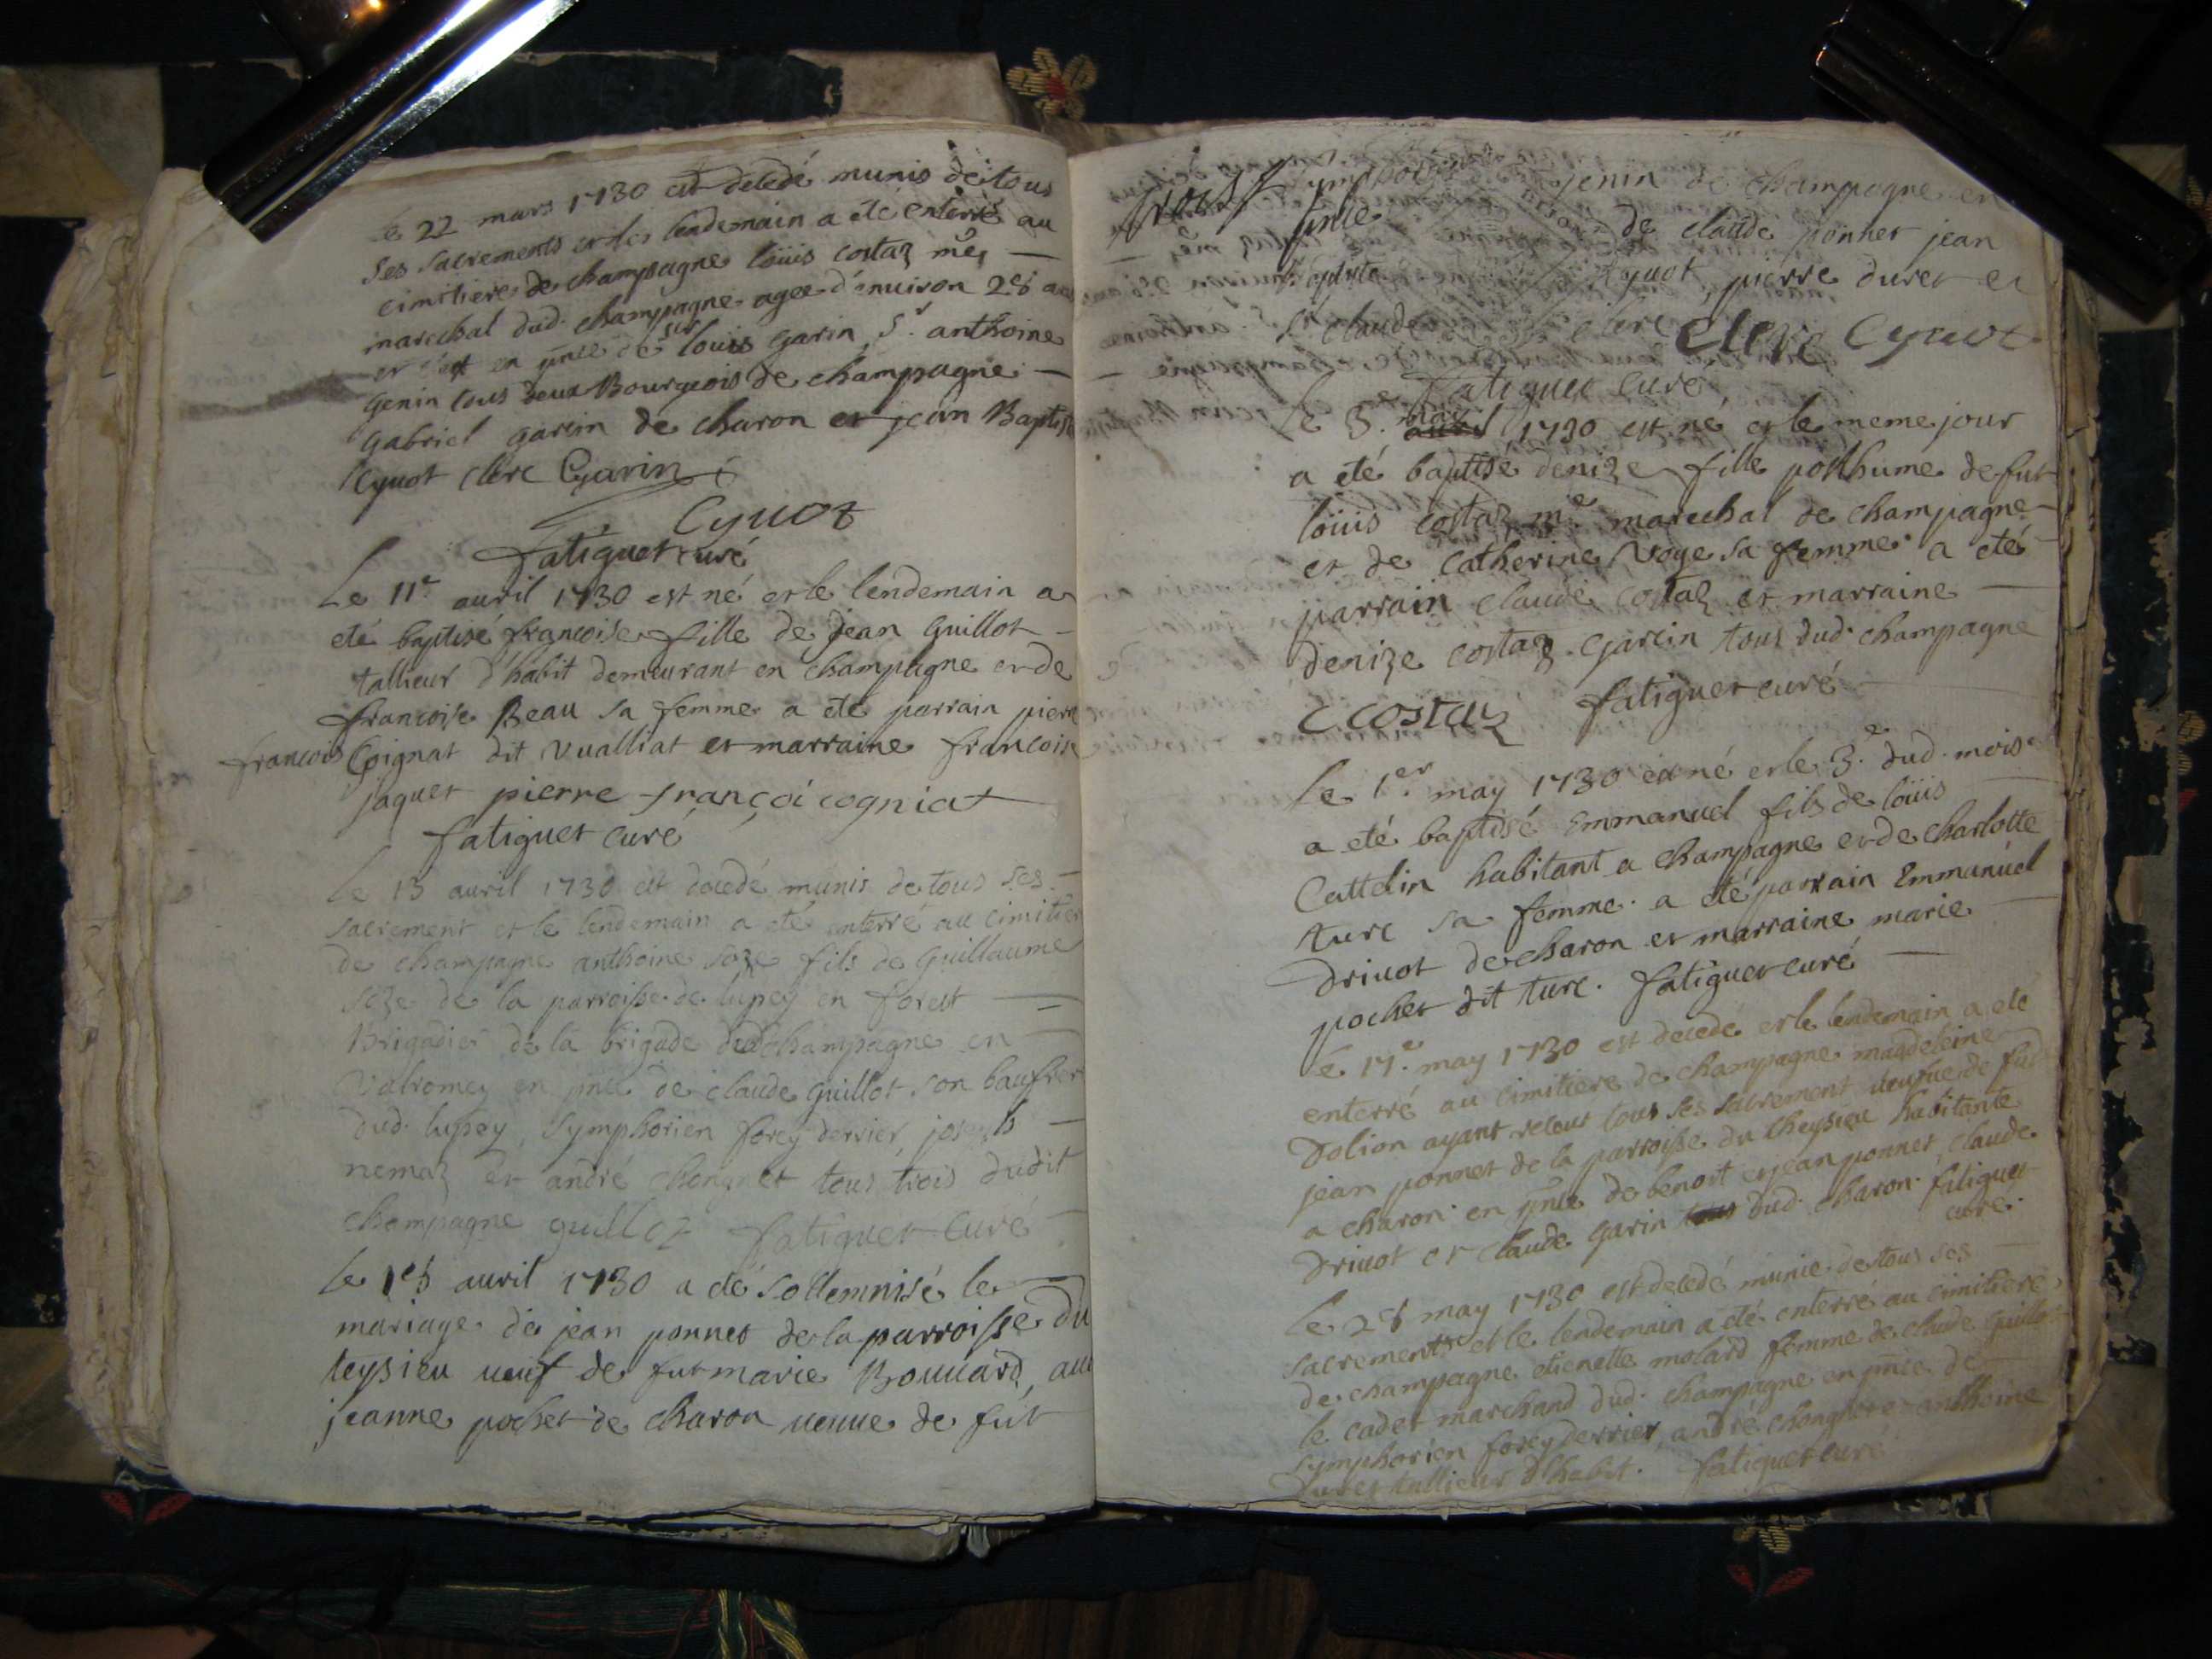 Le 22 mars 1730 est decedé munis de tous
Ses sacrements et le lendemain a eté enterré au
cimitiere de champagne loüis costaz me
marechal dud. champagne agee d'enuiron 28
et en pnce de sr loüis garin, Sr. anthoine
Genin tous deux Bourgeois de champagne
gabriel garin de charon et jean Baptis
Cyuot clerc Garin
Cyuot
fatiguet curé
Le 11e auril 1730 est né et le lendemain a
eté baptisé francoise fille de jean Guillot
tallieur d'habit demeurant en champagne et de
francoise Beau sa femme a eté parrain pierre
francois Coignat dit vualliat et marraine francoise
jaquet pierre françoi cogniat
fatiguet curé
Le 13 auril 1730 est decedé munis de tous ses
sacrement et le lendemain a eté enterré au cimitier
de champagne anthoine soze fils de Guillaume
soze de la parroisse de lupey en forest
Brigadier de la brigade de champagne en
Valromey en pnce de claude guillot son baufrer
dud. lupey, Symphorien forey derrier, joseph
nemaz et andré chongnet tous trois dudit
champagne guillot fatiguet curé
Le 18 auril 1730 a eté sollemnisé le
mariage de jean ponnet de la parroisse du
teysieu ueuf de fut marie Bouuard, au
jeanne pochet de charon ueuue de fut
jenin de champagne en
pnce de claude ponnet jean
Baptiste Cyuot, pierre duret et
sr claude clerc Cyuot
fatiguet curé
Le 3.e may 1730 est né et le meme jour
a eté baptisé denize fille posthume de fut
loüis costaz me marechal de champagne
et de Catherine Voye sa femme a eté
parrain claude costaz et marraine
denize costaz garin tous dud. champagne
C costaz fatiguet curé
Le 1er may 1730 est né et le 3.e dud. mois
a eté baptisé Emmanuel fils de loüis
Cattelin habitant a champagne et de charlotte
turc sa femme. a eté parrain Emmanuel
Driuot de charon et marraine marie
pochet dit turc. fatiguet curé
Le 17.e may 1730 est decedé et le lendemain a eté
enterré au cimitiere de champagne magdeleine
Dolion ayant receut tous ses sacrement ueufue de fut
jean ponnet de la parroisse du theysieu habitante
a charon en pnce de benoit et jean ponnet, claude
Driuot et claude garin dud. charon. fatiguet
curé.
Le 28 may 1730 est decedé munie de tous ses
sacrements et le lendemain a eté enterré au cimitiere
de champagne etienette molard femme de claude guillot
le cadet marchand dud. champagne en pnce de
symphorien forey derrier, andré chongnet et anthoine
duret tallieur d'habit. fatiguet curé